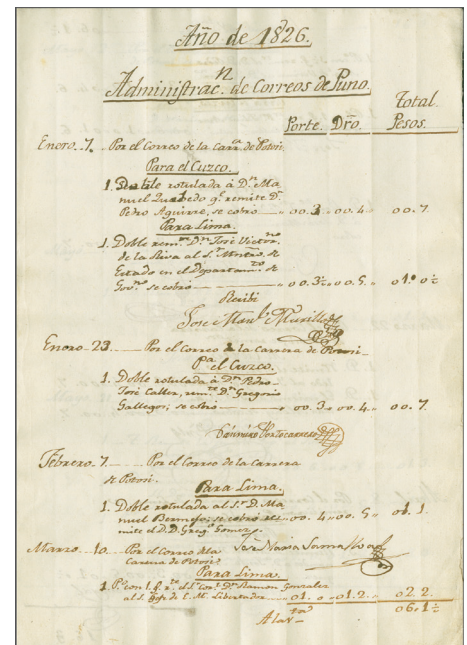 Año de 1826.
Administrac.n de Correos de Puno.
Total
Porte. Dro. Pesos.
Enero. 7. Por el Correo de la Carr.a de Potosi.
Para el Cuzco.
1. Doble rotulada à D.n Ma-
nuel q.e remite D.n
Pedro Aguirre, se cobro 00.3 00.4 00.7
Para Lima.
1. Doble rem.te D.n José Victor.no
de la Riva al S.r Mntro. de
Estado en el Departam.to de
Gov.no se cobró 00.3½ 00.5 01.0½
Recibi
José Man.l Murillo
Enero. 23. Por el Correo de la Carrera de Potosi
P.a el Cuzco.
1. Doble rotulada à D.n Pedro
José Caller, rem.te D.n Gregorio
Gallegos, se cobró 00.3 00.4 00.7
Portocarrero
Febrero. 7. Por el Correo de la Carrera
de Potosi.
Para Lima.
1. Doble rotulada al S.r D. Ma-
nuel Bermejo, se cobro re- 00.4 00.5 01.1
mite el D.D. Greg.o Gomez
Marzo. 10. Por el Correo dela
Carrera de Potosi
Para Lima.
1. P. con 1. D.n Ramon Gonzales
al S. de E. M. Libertador 01. 01.2. 02.2
06.1½
A la v.ta